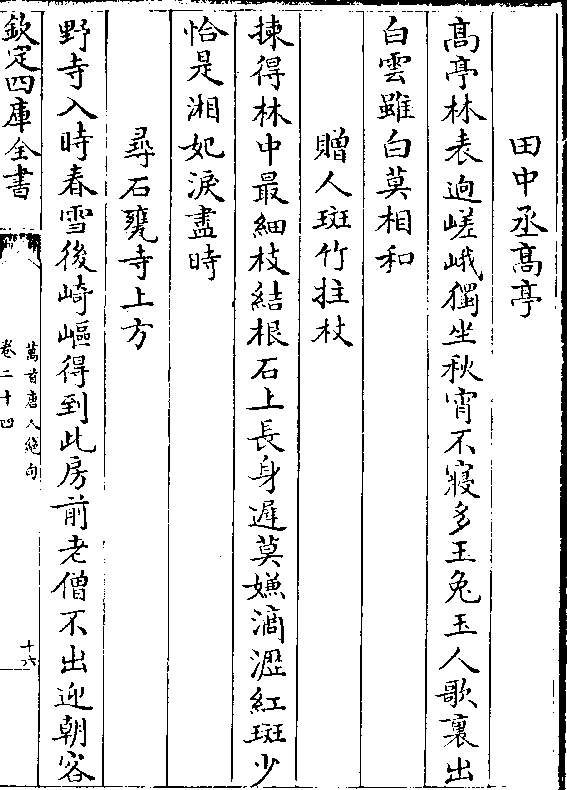 田中丞髙亭
髙亭林表逈嵯峨獨坐秋宵不寢多玉兔玉人歌裏出
白雲雖白莫相和
贈人斑竹拄杖
揀得林中最細枝結根石上長身遲莫嫌滴瀝紅斑少
恰是湘妃淚盡時
尋石甕寺上方
野寺入時春雪後崎嶇得到此房前老僧不出迎朝客
欽定四庫全書
萬首唐人絶句
卷二十四
十六